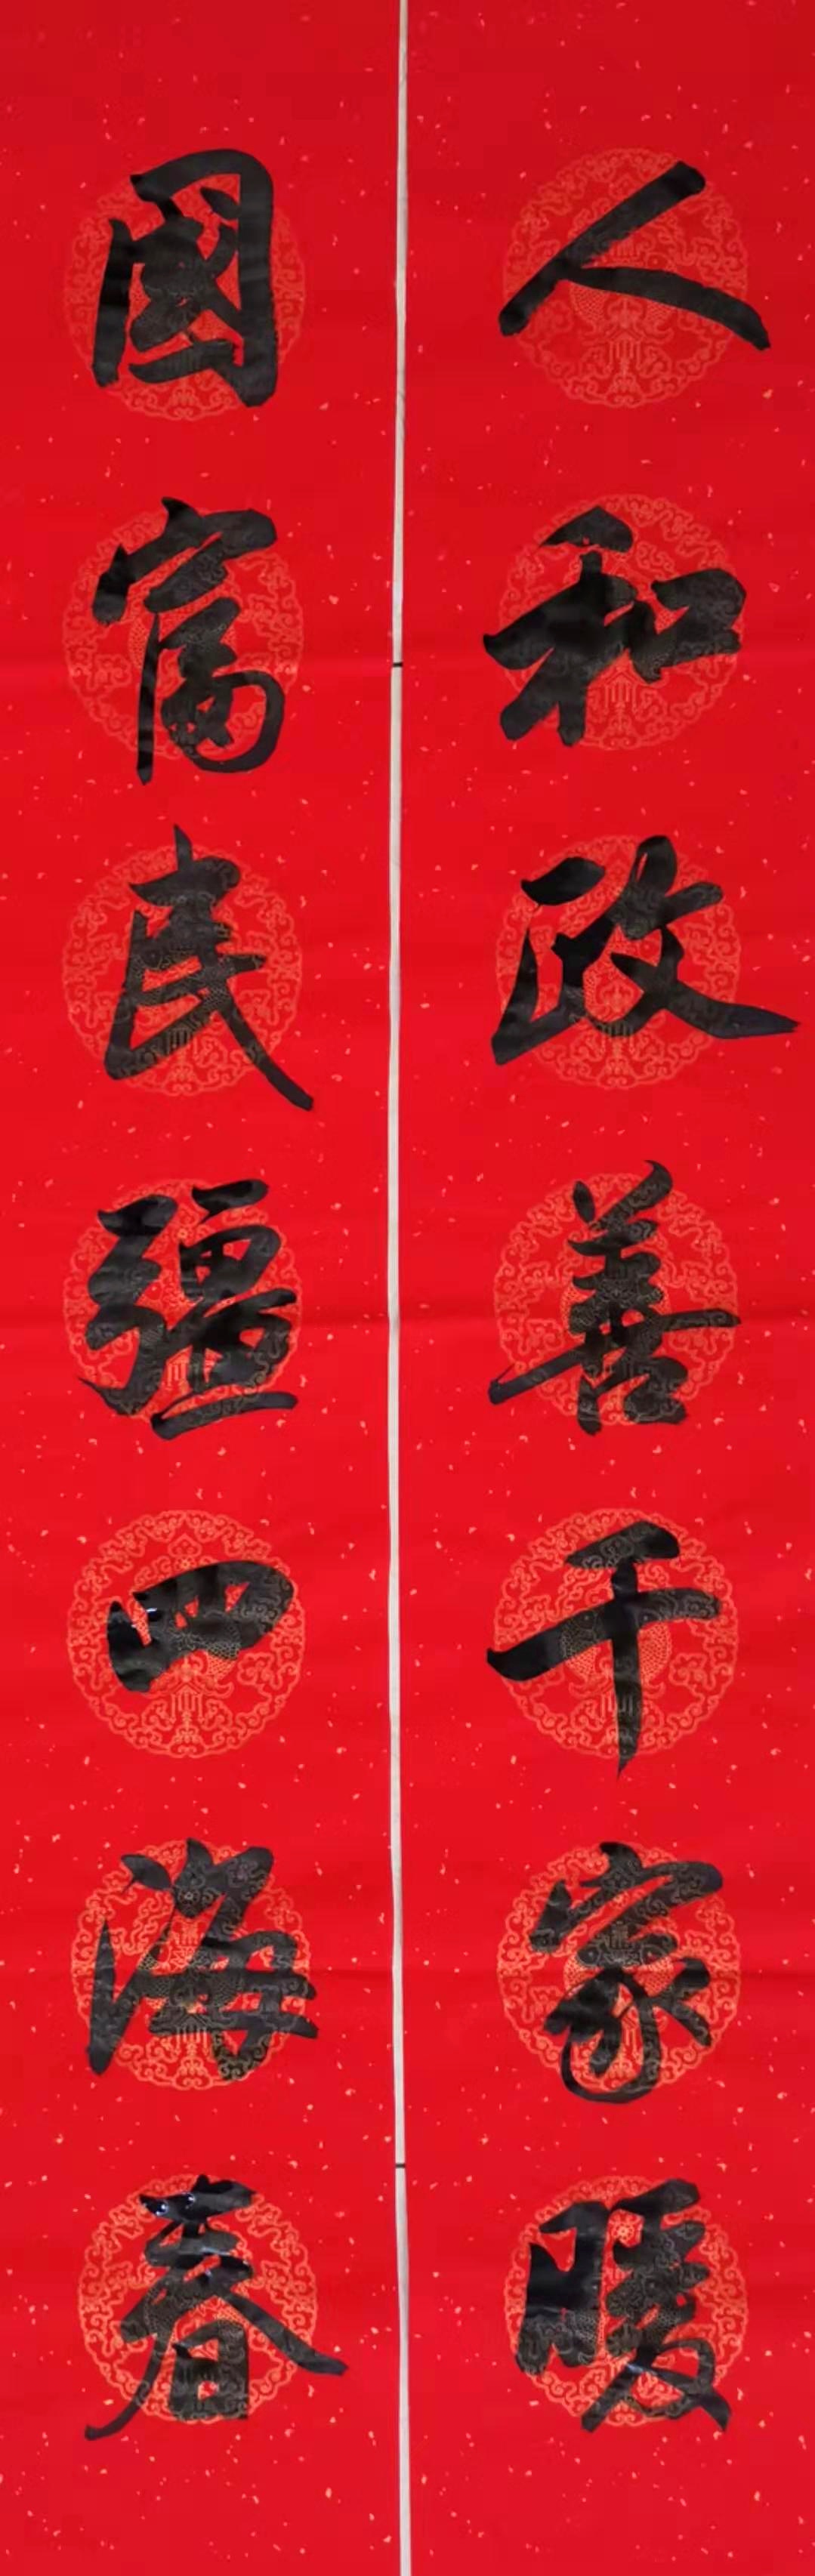 人和政善千家暖
國富民疆四海春